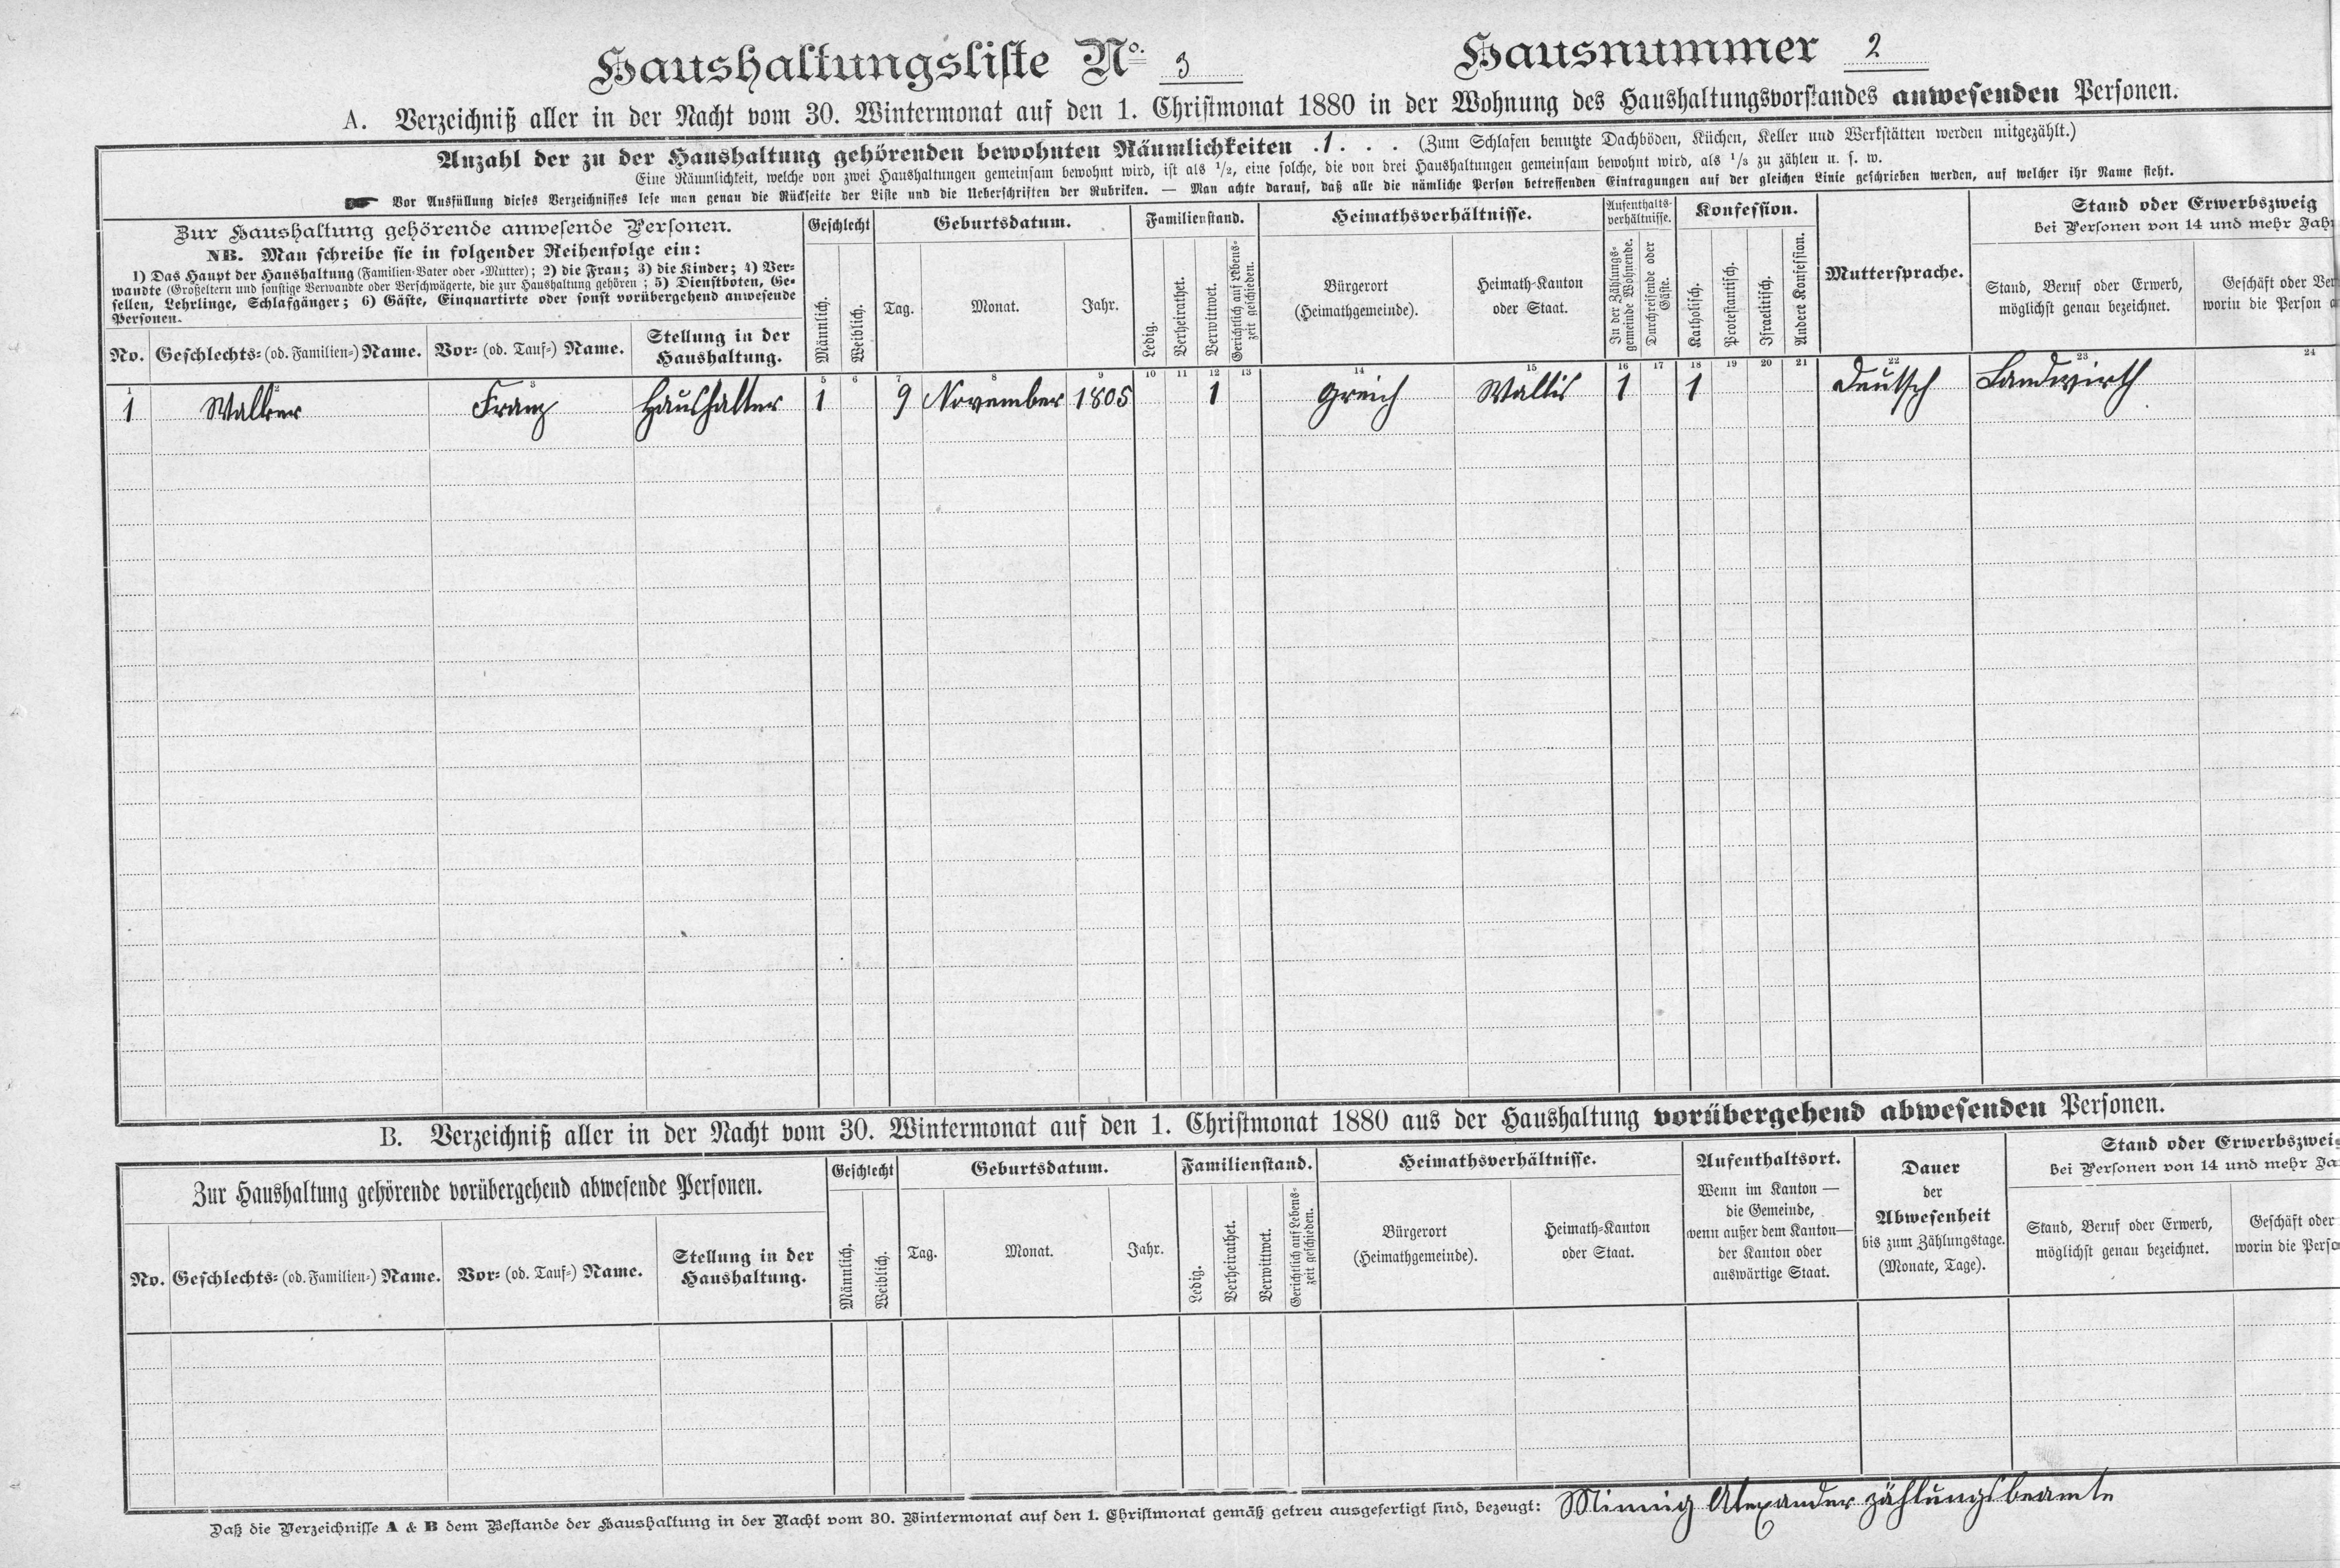 Haushaltungsliste No. 3 Hausnummer 2
A. Verzeichniß aller in der Nacht vom 30. Wintermonat auf den 1. Christmonat 1880 in der Wohnung des Haushaltungsvorstandes anwesenden Personen.
Anzahl der zu der Haushaltung gehörenden bewohnten Räumlichkeiten . 1 . . . (Zum Schlafen benutzte Dachböden, Küchen, Keller und Werkstätten werden mitgezählt.)
Eine Räumlichkeit, welche von zwei Haushaltungen gemeinsam bewohnt wird, ist als 1/2, eine solche, die von drei Haushaltungen gemeinsam bewohnt wird, als 1/3 zu zählen u. s. w.
Vor Ausfüllung dieses Verzeichnisses lese man genau die Rückseite der Liste und die Ueberschriften der Rubriken. — Man achte darauf, daß alle die nämliche Person betreffenden Eintragungen auf der gleichen Linie geschrieben werden, auf welcher ihr Name steht.
Zur Haushaltung gehörende anwesende Personen.
NB. Man schreibe sie in folgender Reihenfolge ein:
1) Das Haupt der Haushaltung (Familien-Vater oder -Mutter); 2) die Frau; 3) die Kinder; 4) Ver-
wandte (Großeltern und sonstige Verwandte oder Verschwägerte, die zur Haushaltung gehören; 5) Dienstboten, Ge-
sellen, Lehrlinge, Schlafgänger; 6) Gäste, Einquartirte oder sonst vorübergehend anwesende
Personen.
No. Geschlechts- (od. Familien-) Name. Vor- (od. Tauf-) Name. Stellung in der
Haushaltung.
Geschlecht
Männlich. Weiblich.
Geburtsdatum.
Tag. Monat. Jahr.
Familienstand.
Ledig. Verheirathet. Verwittwet. Gerichtlich auf Lebens-
zeit geschieden.
Heimathsverhältnisse.
Bürgerort
(Heimathgemeinde).
Heimath-Kanton
oder Staat.
Aufenthalts-
verhältnisse.
In der Zählungs-
gemeinde Wohnende.
Durchreisende oder
Gäste.
Konfession.
Katholisch. Protestantisch. Israelitisch. Andere Konfession.
Muttersprache.
Stand oder Erwerbszweig
bei Personen von 14 und mehr Jah
Stand, Beruf oder Erwerb,
möglichst genau bezeichnet.
Geschäft oder Ver
worin die Person
1 2 3 5 6 7 8 9 10 11 12 13 14 15 16 17 18 19 20 21 22 23 24
1 Walker Franz Haushalter 1 9 November 1805 1 Greich Wallis 1 1 Deutsch Landwirth
B. Verzeichniß aller in der Nacht vom 30. Wintermonat auf den 1. Christmonat 1880 aus der Haushaltung vorübergehend abwesenden Personen.
Zur Haushaltung gehörende vorübergehend abwesende Personen.
No. Geschlechts- (od. Familien-) Name. Vor- (od. Tauf-) Name. Stellung in der
Haushaltung.
Geschlecht
Männlich. Weiblich.
Geburtsdatum.
Tag. Monat. Jahr.
Familienstand.
Ledig. Verheirathet. Verwittwet. Gerichtlich auf Lebens-
zeit geschieden.
Heimathsverhältnisse.
Bürgerort
(Heimathgemeinde).
Heimath-Kanton
oder Staat.
Aufenthaltsort.
Wenn im Kanton —
die Gemeinde,
wenn außer dem Kanton—
der Kanton oder
auswärtige Staat.
Dauer
der
Abwesenheit
bis zum Zählungstage.
(Monate, Tage).
Stand oder Erwerbszweig
bei Personen von 14 und mehr Ja
Stand, Beruf oder Erwerb,
möglichst genau bezeichnet.
Geschäft oder
worin die Perso
Daß die Verzeichnisse A & B dem Bestande der Haushaltung in der Nacht vom 30. Wintermonat auf den 1. Christmonat gemäß getreu ausgefertigt sind, bezeugt: Minnig Alexander zählungsbeamte